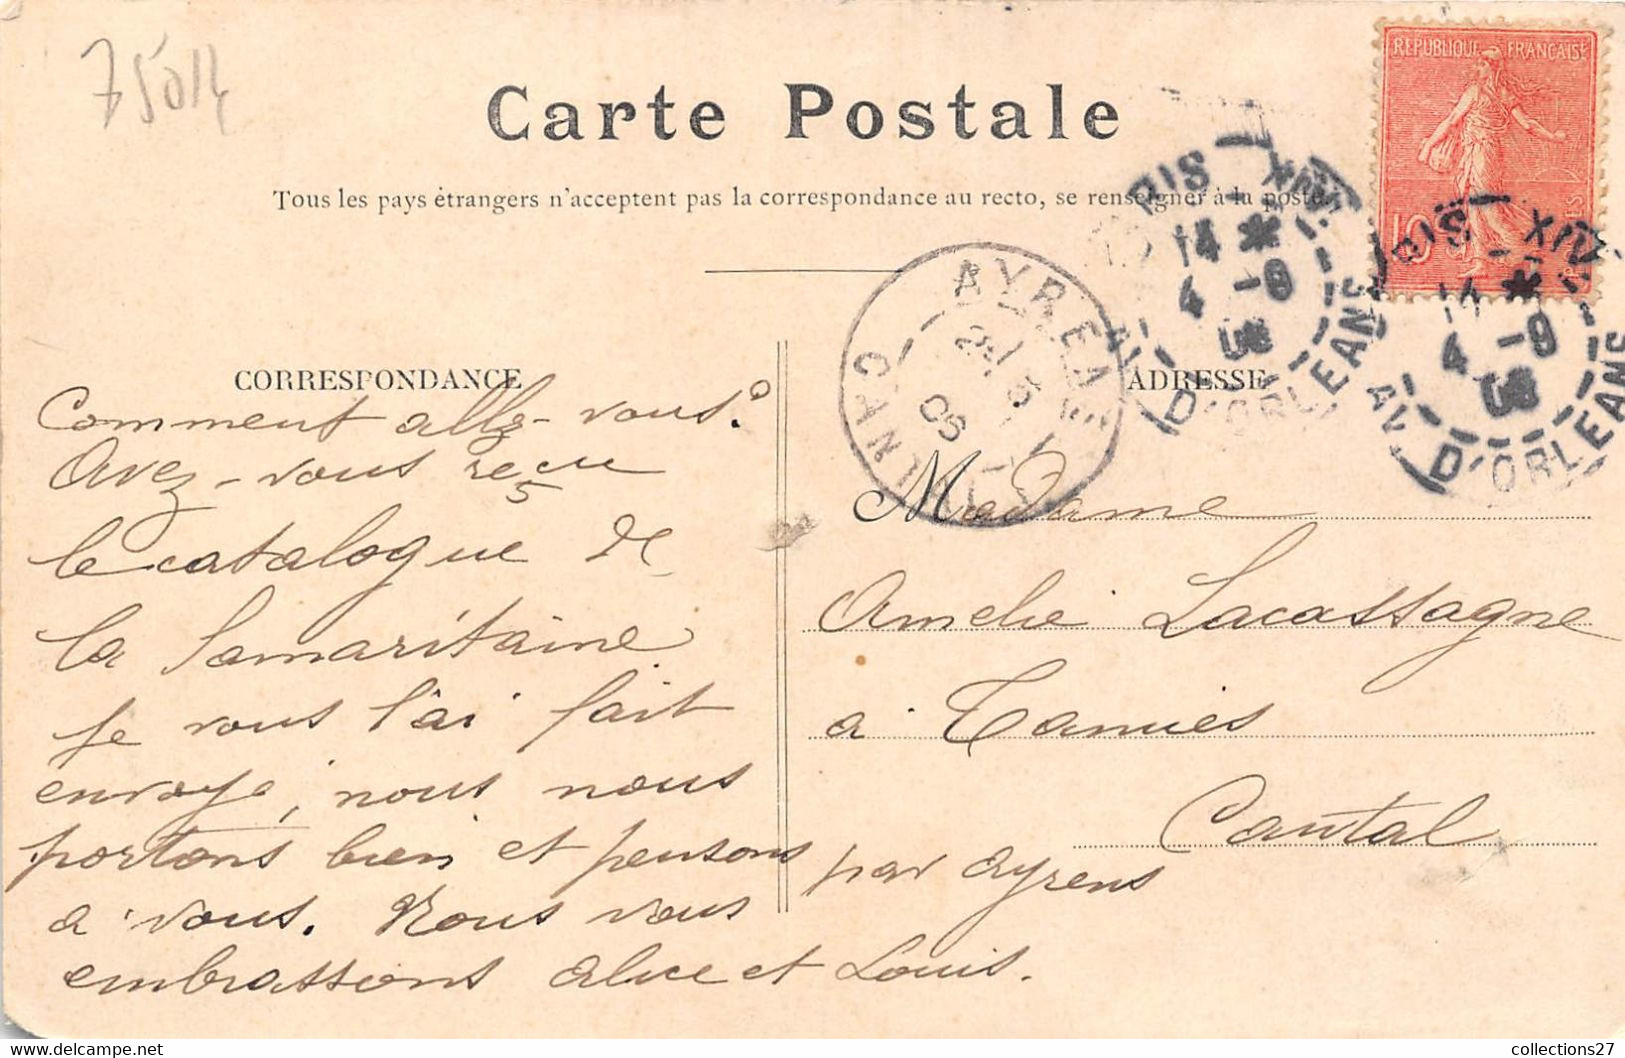 75014
Carte Postale
Tous les pays étrangers n'acceptent pas la correspondance au recto, se renseigner à la poste.
REPUBLIQUE FRANÇAISE
10
PARIS XIV
14 *
4 - 9
08
AV. D'ORLEANS
PARIS XIV
14 *
4 - 9
08
AV. D'ORLEANS
AYRENS
CANTAL
CORRESPONDANCE
Comment allez-vous?
Avez-vous reçu
le catalogue de
la Samaritaine
je vous l'ai fait
envoyé, nous nous
portons bien et pensons
a vous. Nous vous
embrassons Alice et Louis.
ADRESSE
Madame
Amelie Lacassagne
a Tamies
Cantal
par Ayrens
collections27